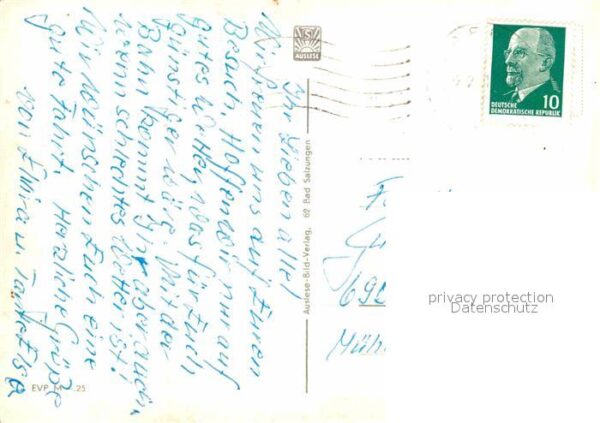 Ihr Lieben alle!
Wir freuen uns auf Euren
Besuch. Hoffen wir nur auf
gutes Wetter, was für Euch
günstiger wäre. Mit der
Bahn kommt Ihr aber auch,
wenn schlechtes Wetter ist!
Wir wünschen Euch eine
gute Fahrt. Herzliche Grüße
von Elvira u. Tante Elsa
AUSLESE
Auslese-Bild-Verlag, 62 Bad Salzungen
EVP M -.25
DEUTSCHE
DEMOKRATISCHE REPUBLIK
10
692
Mühl
privacy protection
Datenschutz